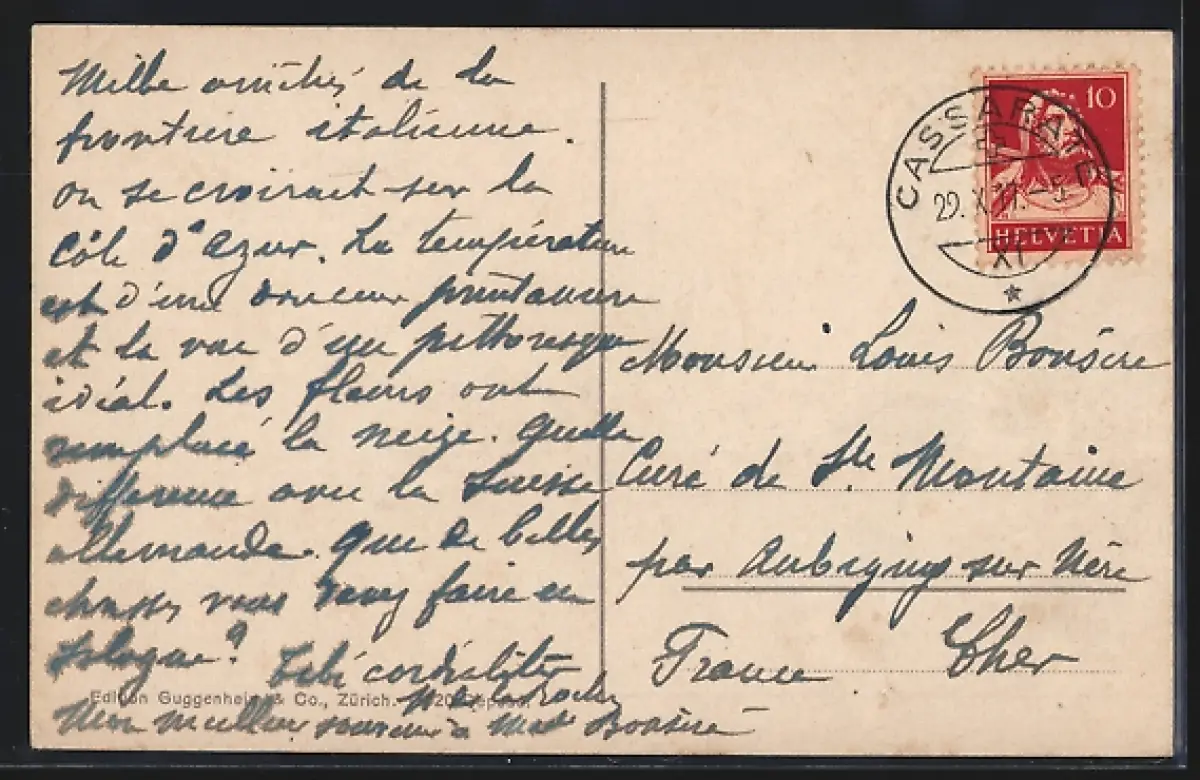 Mille amitiés de la
frontière italienne.
On se croirait sur la
Côte d'Azur. La température
est d'une douceur printanière
et la vue d'un pittoresque
idéal. Les fleurs ont
remplacé la neige. Quelle
différence avec la Suisse
allemande. Que de belles
chasses vous devez faire en
Sologne?
Tibi cordialiter
Edition Guggenheim & Co., Zürich.
Mon meilleur souvenir à Bonsère
CASSARATE
29.X.17.-5
XI
10
HELVETIA
Monsieur Louis Bonsère
Curé de Ste Montaine
par Aubigny sur Nère
France Cher